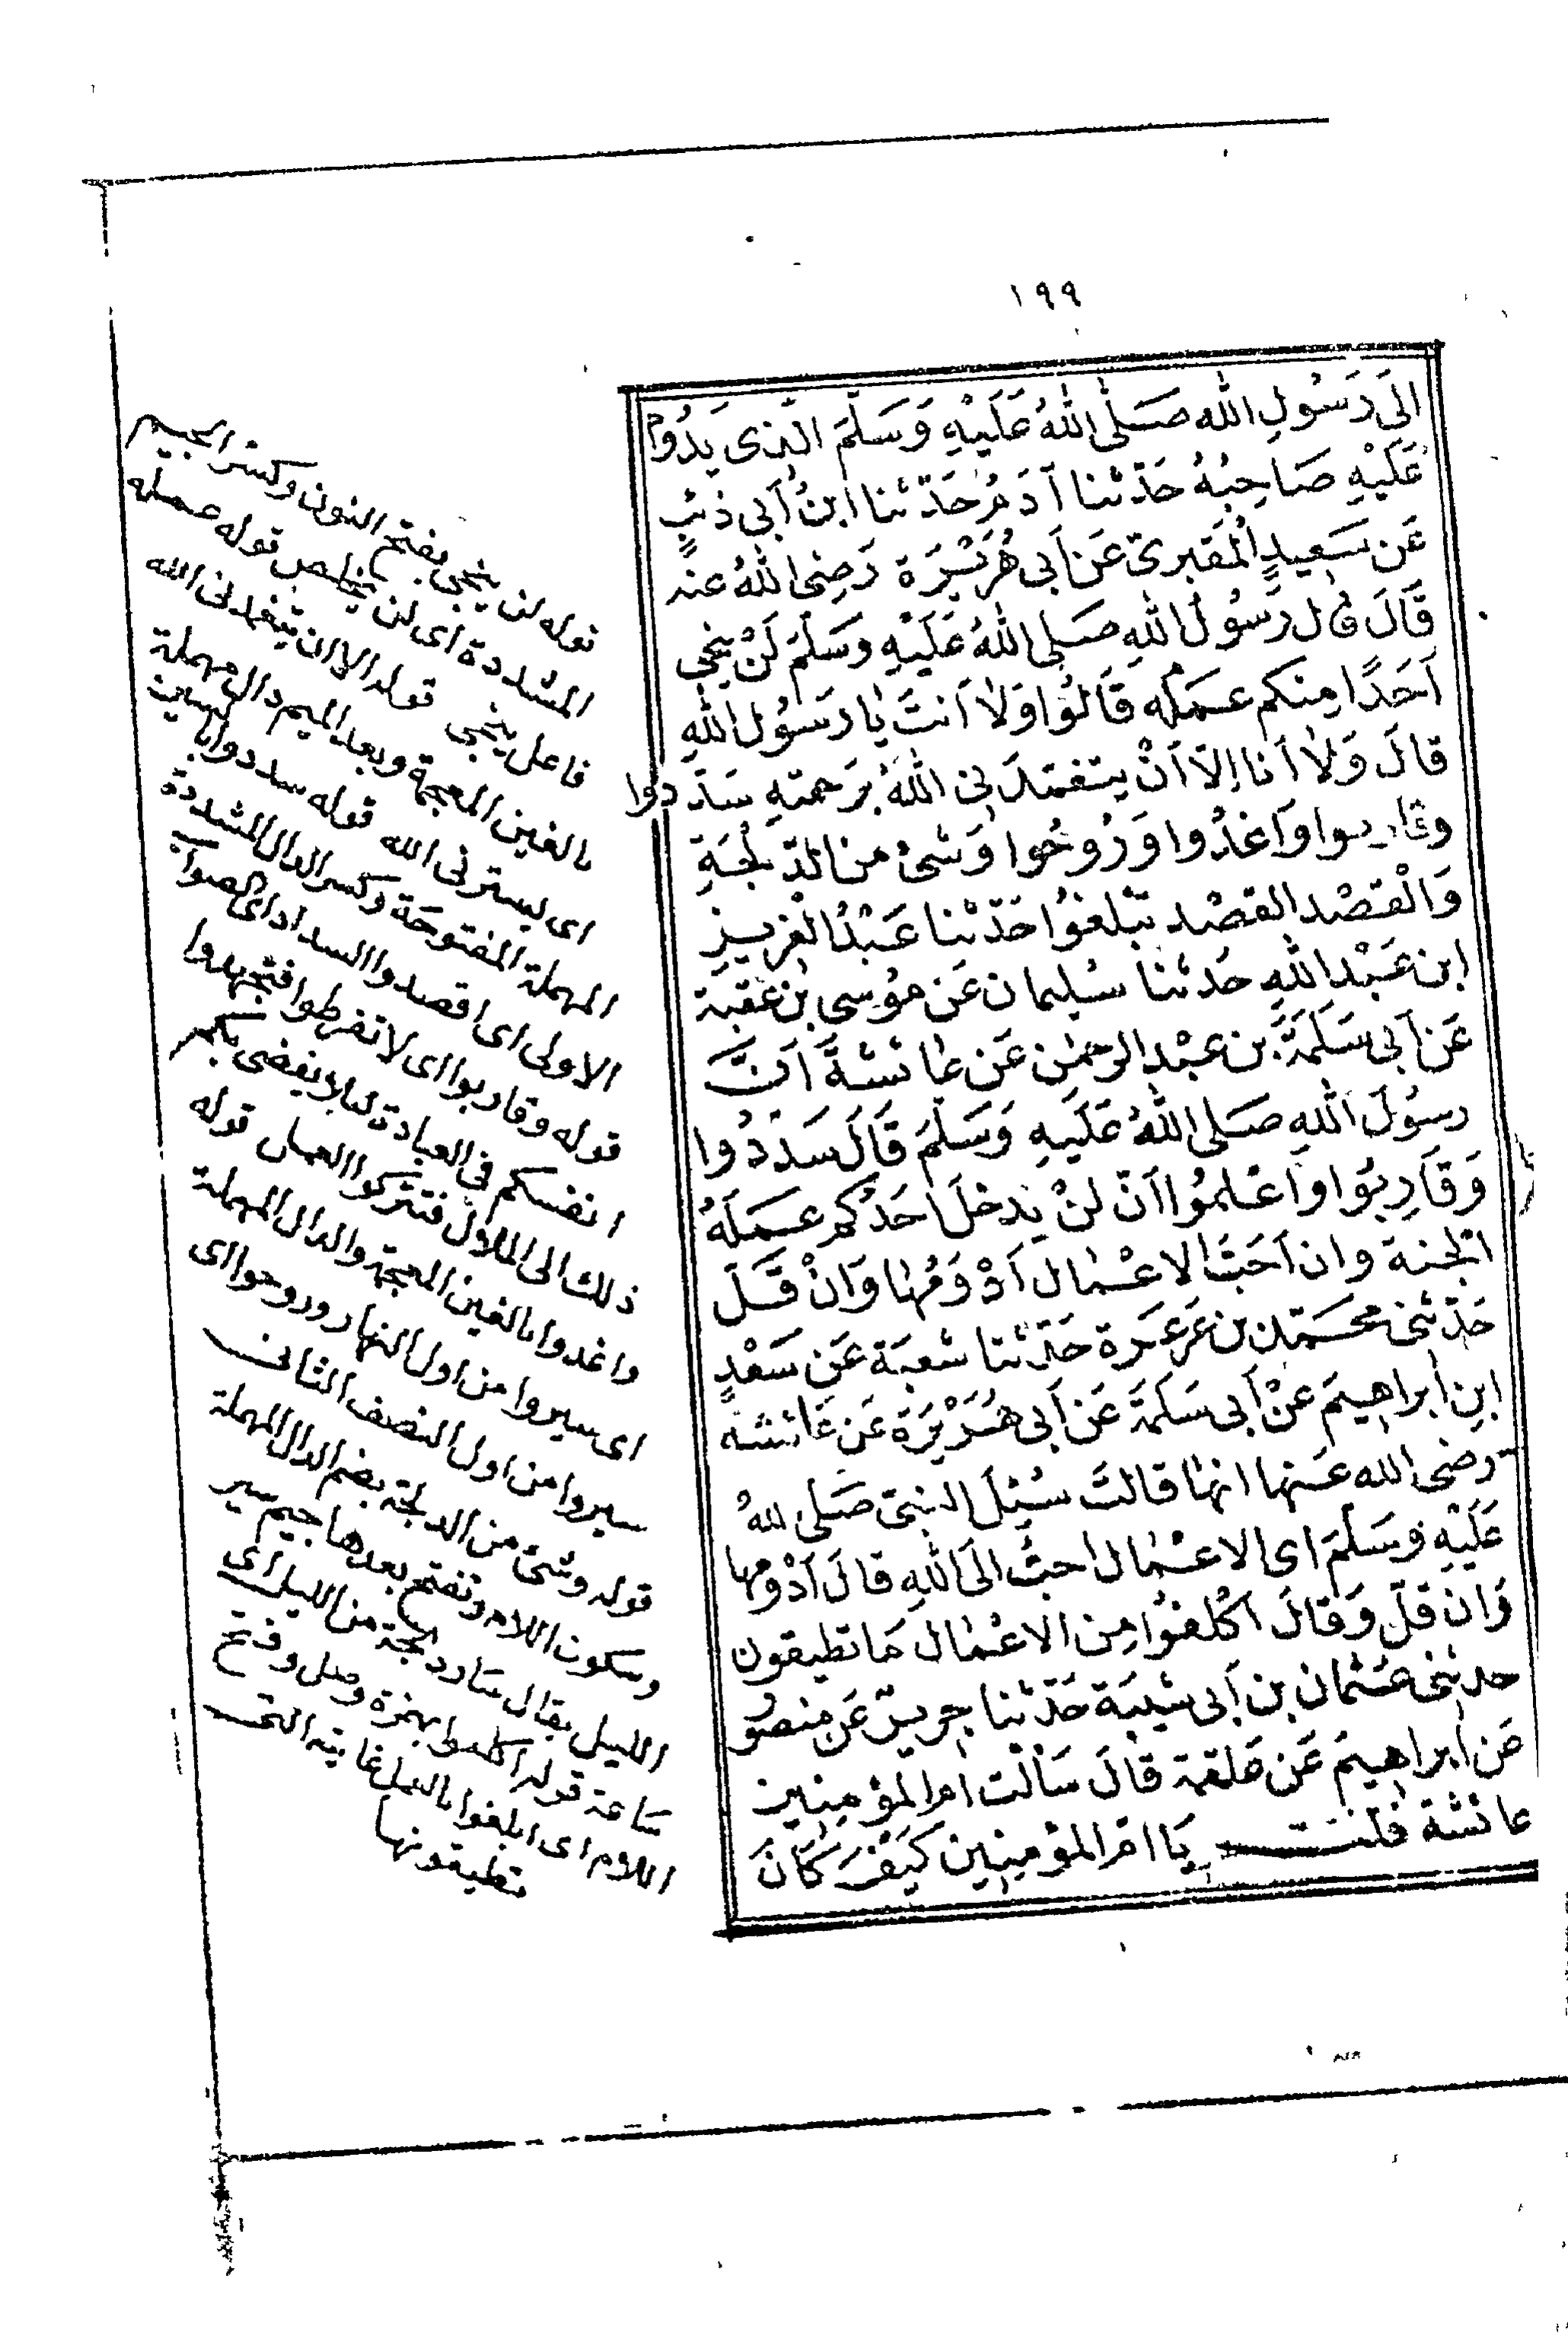 ١٩٩
اِلَى رَسُولِ الله صَلَّى اللهُ عَلَيْهِ وَسَلَّمَ الَّذِى يَدُومُ
عَلَيْهِ صَاحِبُهُ حَدّثنا آدَمُ حَدّثنا ابنُ اَبى ذئبٍ
عَن سَعِيدٍ المَقبرىّ عَن اَبى هُرَيْرَة رَضِىَ اللهُ عنه
قَالَ قال رَسُولُ اللهِ صَلى اللهُ عَلَيْهِ وَسَلَّمَ لَنْ ينجّى
اَحَدًا مِنكم عَمَلُه قَالُوا وَلاَ اَنتَ يَا رَسُول اللهِ
قالَ وَلاَ اَنا اِلاّ اَنْ يتغمدَ نِى اللهُ بَرَحمتهِ سَدّدُوا
وقاربوا وَاغدُوا وَرُوحُوا وَشئ من الدّلجَةِ
وَالْقصْد القصْد تبْلغوُا حَدّثنا عَبْدُ العَزيزِ
ابن عَبْد اللهِ حَدثنا سُليمان عَن موُسى بن عقبَة
عَن اَبى سَلَمَةَ بن عبْد الرحمٰن عَن عَائشةَ اَنَّ
رسُولَ اللهِ صَلى اللهُ عَلَيهِ وَسَلَّمَ قَالَ سَدّدُوا
وَقَارِبوُا وَاعْلموُا اَنّ لنْ يدخلَ اَحَدُكم عَمَلَهُ
الجنة وان اَحَبَّ الاعْمال اَدْوَمُها وَانْ قَلَّ
حَدّثنى محمّد بن عَرعَرة حَدّثنا شعبَة عَن سَعْدٍ
ابنِ اِبراهِيمَ عَنْ اَبى سَلمَةَ عَن اَبى هُرَيْرَة عَن عَائشة
رضى الله عَنها انها قالتَ سُئِلَ النبىّ صَلى اللهُ
عَلَيْهِ وسَلَّمَ اى الاعْمال احبُّ الَى اللهِ قالَ اَدْومها
وَان قلّ وَقالَ اكلفوُا مِن الاعْمال مَا تطيقون
حدثنى عُثمان بن اَبى شَيبَة حَدّثنا جرير عَن منصُو
عَن ابراهِيمَ عَن علقمة قالَ سَاَلت ام المؤمنِين
عائشة قلت يَا ام المؤمِنِين كيْفَ كَانَ
قوله لن ينجى بفتح النون وكسر الجيم
المشددة اى لن يخلص قوله عمله
فاعل ينجى قوله الا ان يتغمدنى الله
بالغين المعجمة وبعد الميم دال مهملة
اى يسترنى الله قوله سددوا بالسين
المهملة المفتوحة وكسر الدال المشددة
الاولى اى اقصدوا السداد اى الصواب
قوله وقاربوا اى لا تفرطوا فتجهدوا
انفسكم فى العبادة لئلا يفضى بكم
ذلك الى الملال فتتركوا العمل قوله
واغدوا بالغين المعجمة والدال المهملة
اى سيروا من اول النهار وروحوا اى
سيروا من اول النصف الثانى
قوله وشئ من الدلجة بضم الدال المهملة
وسكون اللام وتفتح بعدها جيم سير
الليل يقال سار دلجة من الليل اى
ساعة قوله اكلفوا بهمزة وصل وفتح
اللام اى ابلغوا بالعمل غايته التى
تطيقونها